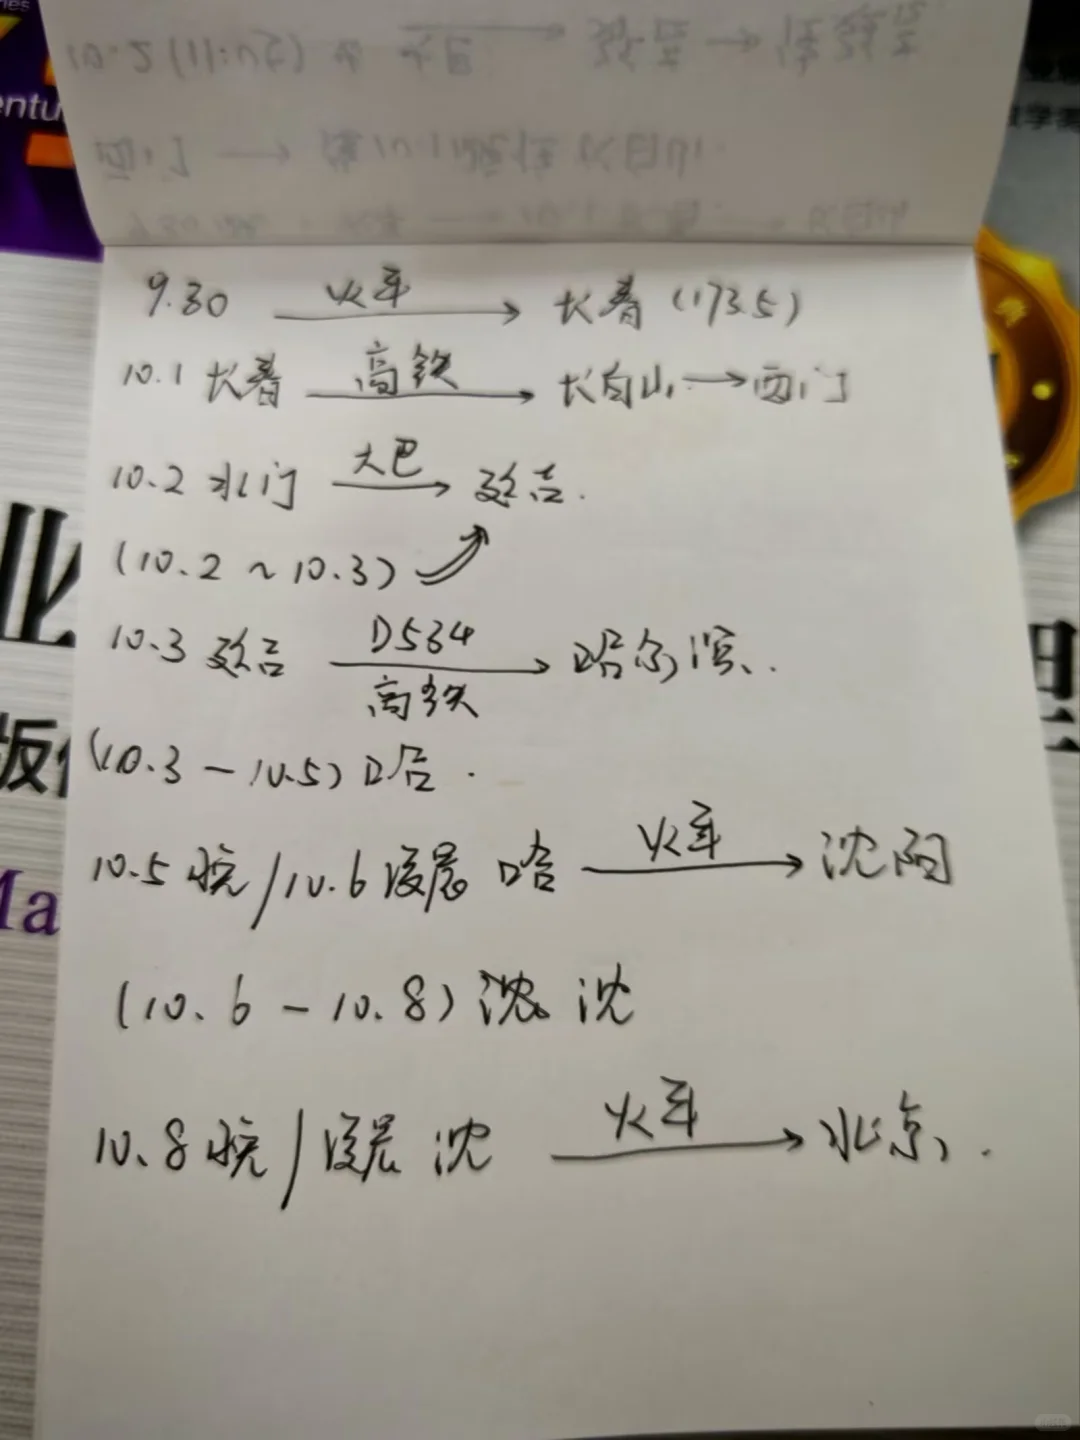 9.30 火车 → 长春 (1735)
10.1 长春 高铁 → 长白山 → 西门
10.2 北门 大巴 → 延吉.
(10.2 ~ 10.3)
10.3 延吉 D534 高铁 → 哈尔滨.
(10.3 - 10.5) 哈.
10.5 晚/10.6 凌晨 哈 火车 → 沈阳
(10.6 - 10.8) 沈
10.8 晚/凌晨 沈 火车 → 北京.
entu
业
版
Ma